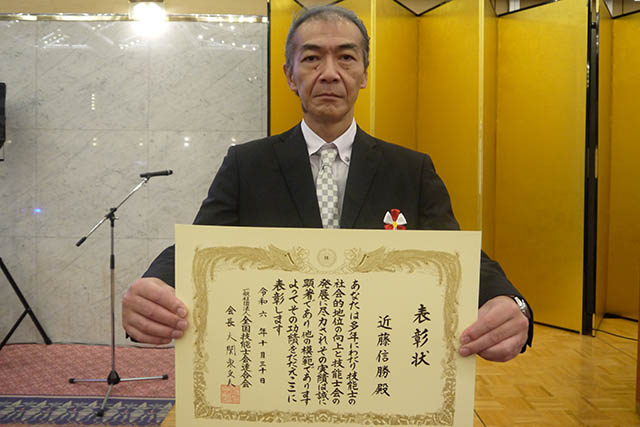 表彰状
近藤信勝殿
あなたは多年にわたり技能士の
社会的地位の向上と技能士会の
発展に尽力されその実績は誠に
顕著であり他の模範であります
よってその功績をたたえここに
表彰します
令和六年十月三十日
一般社団法人全国技能士会連合会
会長 大関東支夫